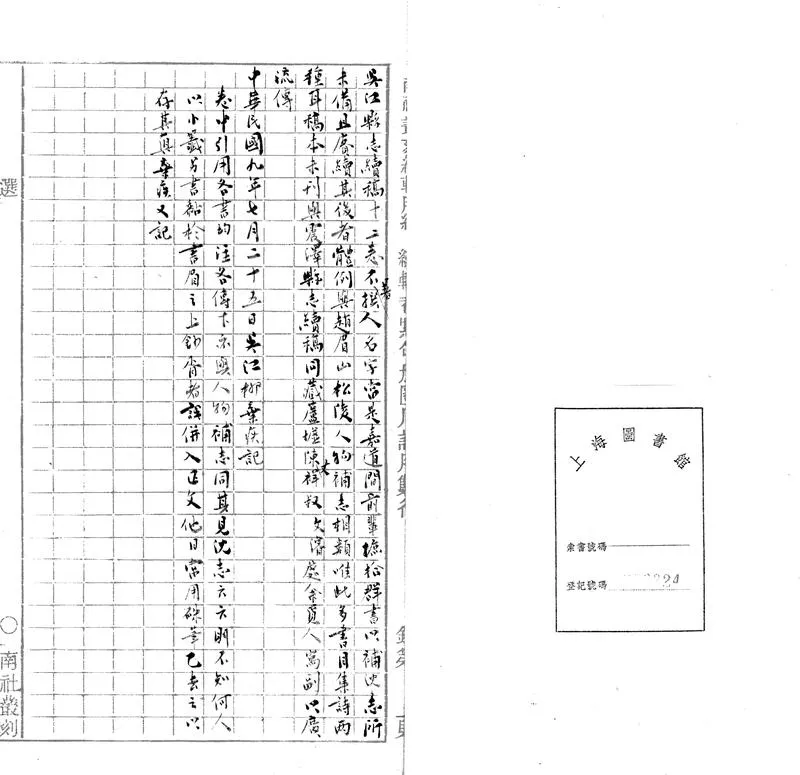 上海圖書館
索書號碼
登記號碼
吳江縣志續稿十二卷不著撰人名字當是嘉道間前輩摭拾群書以補沈志所
未備且賡續其後者體例與趙眉山松陵人物補志相類唯此多書目集詩兩
種耳稿本未刊與震澤縣志續稿同藏蘆墟陳祥叔丈文濬處余覓人寫副以廣
流傳
中華民國九年七月二十五日吳江柳棄疾記
卷中引用各書均注各傳下亦與人物補志同其見沈志云云明不知何人
以小籤另書黏於書眉之上鈔胥者誤併入正文他日當用硃筆乙去之以
存其真棄疾又記
選
〇南社叢刻